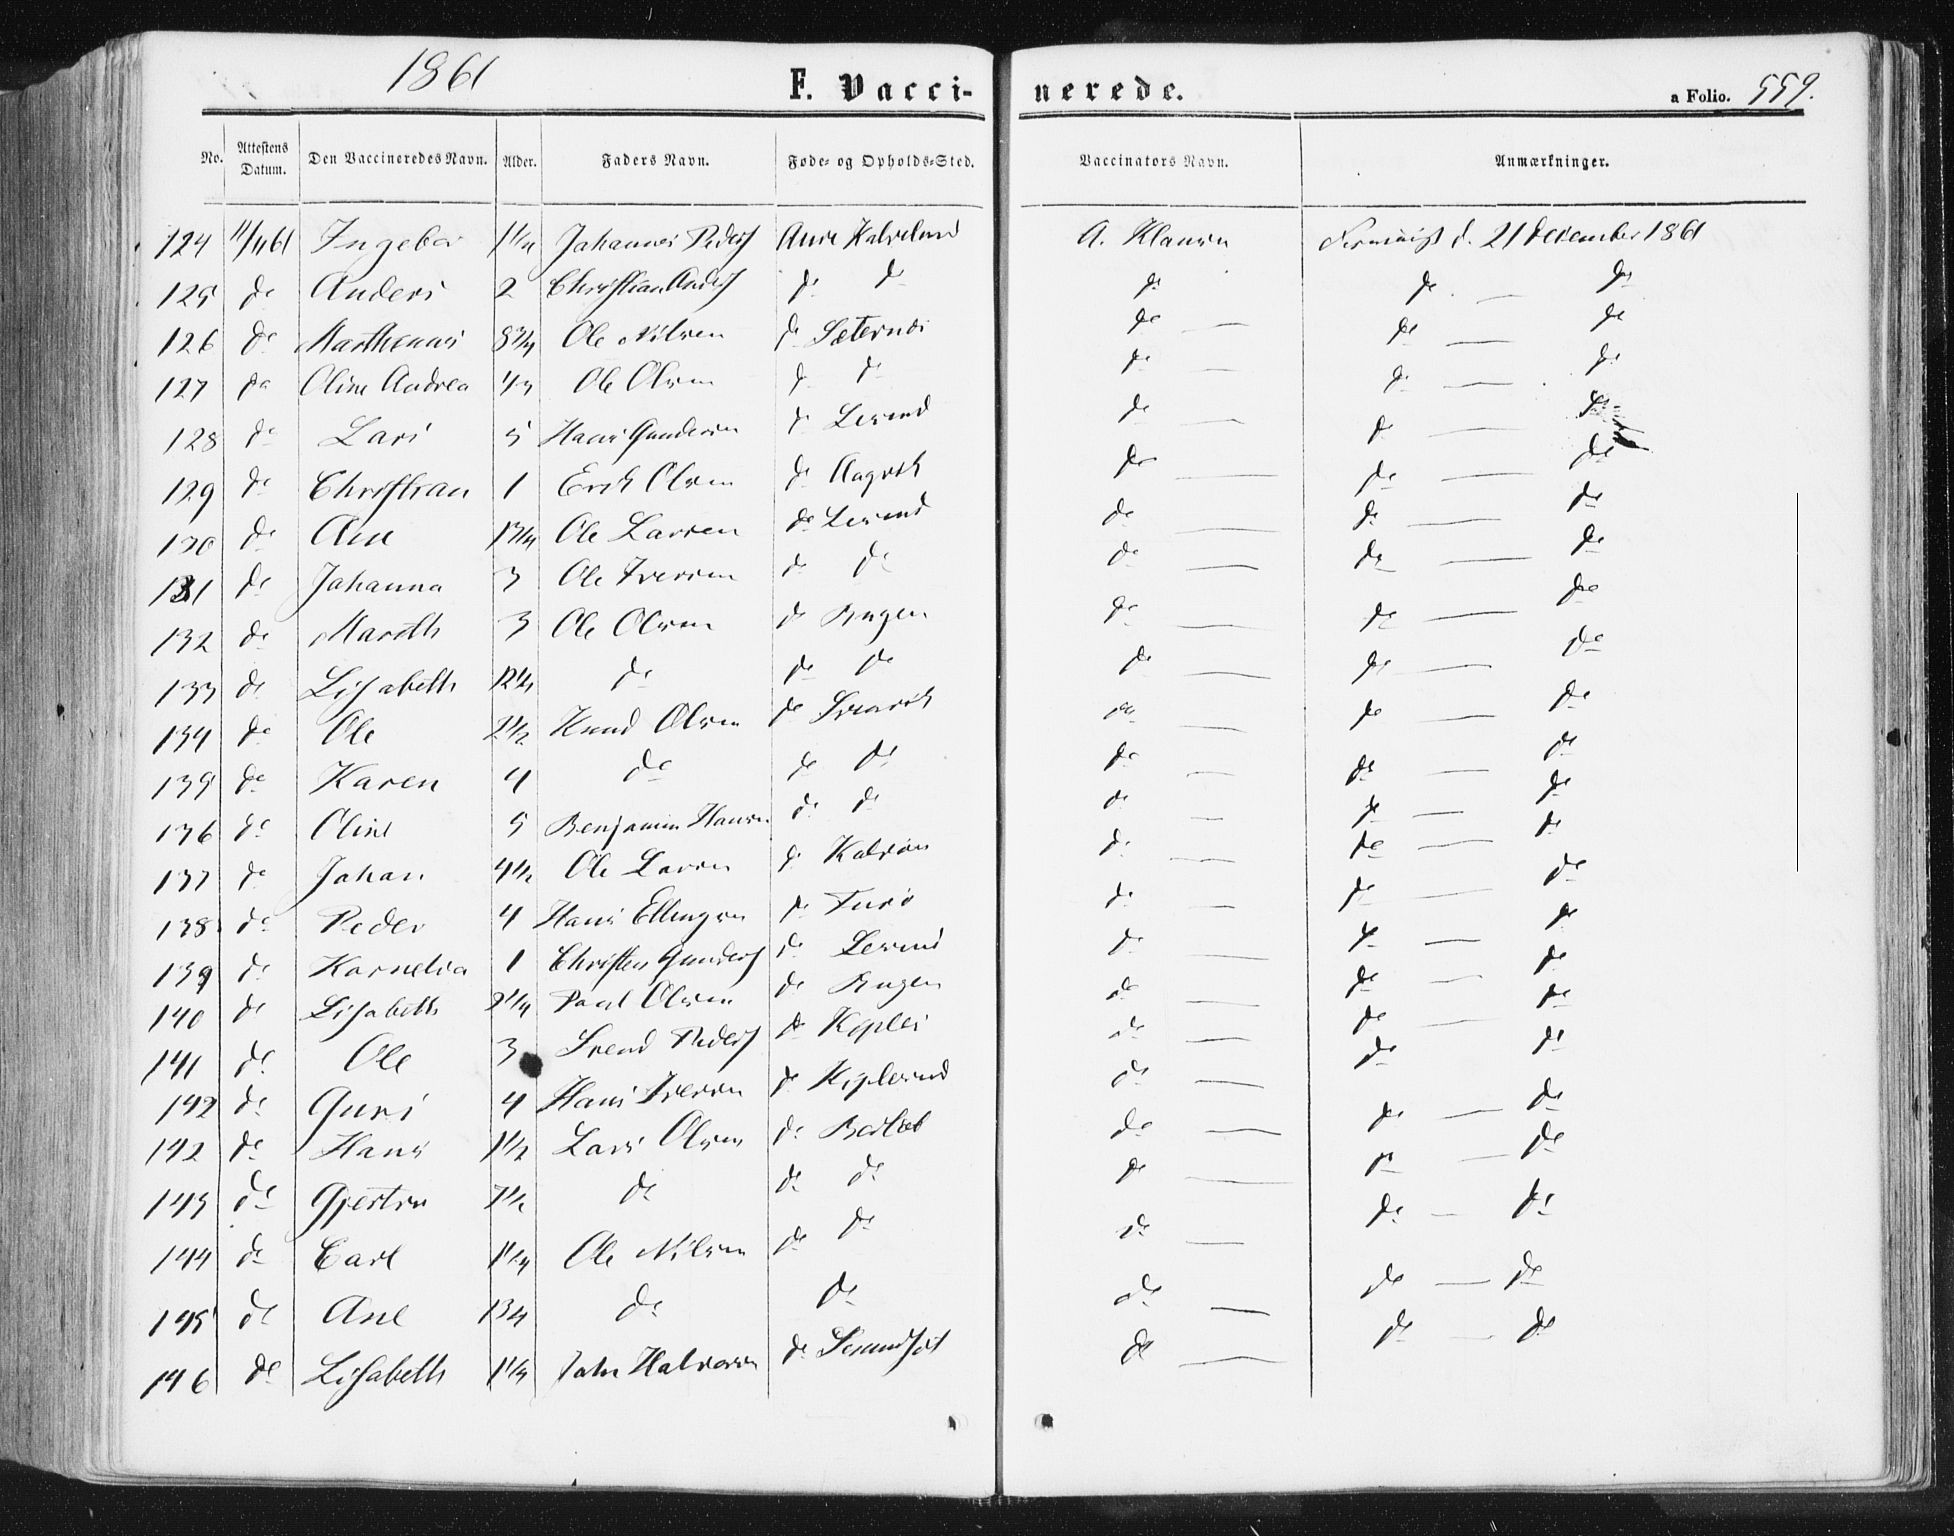 1861 F. Vacci- nerede. a Folio. 559.
No. Attestens Datum. Den Vaccineredes Navn. Alder. Faders Navn. Føde- og Opholds-Sted. Vaccinators Navn. Anmærkninger.
124 11/1161 Ingebor 1 1/4 Johannes Peders Aure A. Klausen d. 21 December 1861
125 do Anders 2 Christian Anders do do do do — do
126 do 8 3/4 Ole Nilsen do Sæternes do — do — do
127 do Oline Andrea 4 Ole Olsen do do do — do — do
128 do Lars 5 Hans Gundersen do Lesund do — do — do
129 do Christian 1 Erik Olsen do Aagvik do — do — do
130 do Ane 1 3/4 Ole Larsen do Lesund do — do — do
131 do Johanna 3 Ole Iversen do do do — do — do
132 do Mareth 3 Ole Olsen do Bugen do — do — do
133 do Lisabeth 12 do do do do — do — do
134 do Ole 2 1/2 Knud Olsen do do — do — do
135 do Karen 4 do do do do — do — do
136 do Oline 5 Benjamin Hansen do do do — do — do
137 do Johan 4 1/2 Ole Larsen do do — do — do
138 do Peder 4 Hans Ellingsen do do — do — do
139 do Kornelia 1 Christen Gunders do Lesund do — do — do
140 do Lisabeth 2 1/4 Paul Olsen do Bugen do — do — do
141 do Ole 3 Svend Peders do do — do — do
142 do Guri 4 Hans Iversen do do — do do
142 do Hans 1 1/2 Lars Olsen do do — do — do
143 do Gjertru 7 1/2 do do do do — do — do
144 do Carl 1 1/4 Ole Nilsen do do do — do — do
145 do Ane 13 do do do — do — do
146 do Lisabeth 1 1/4 John Halvorsen do do — do — do